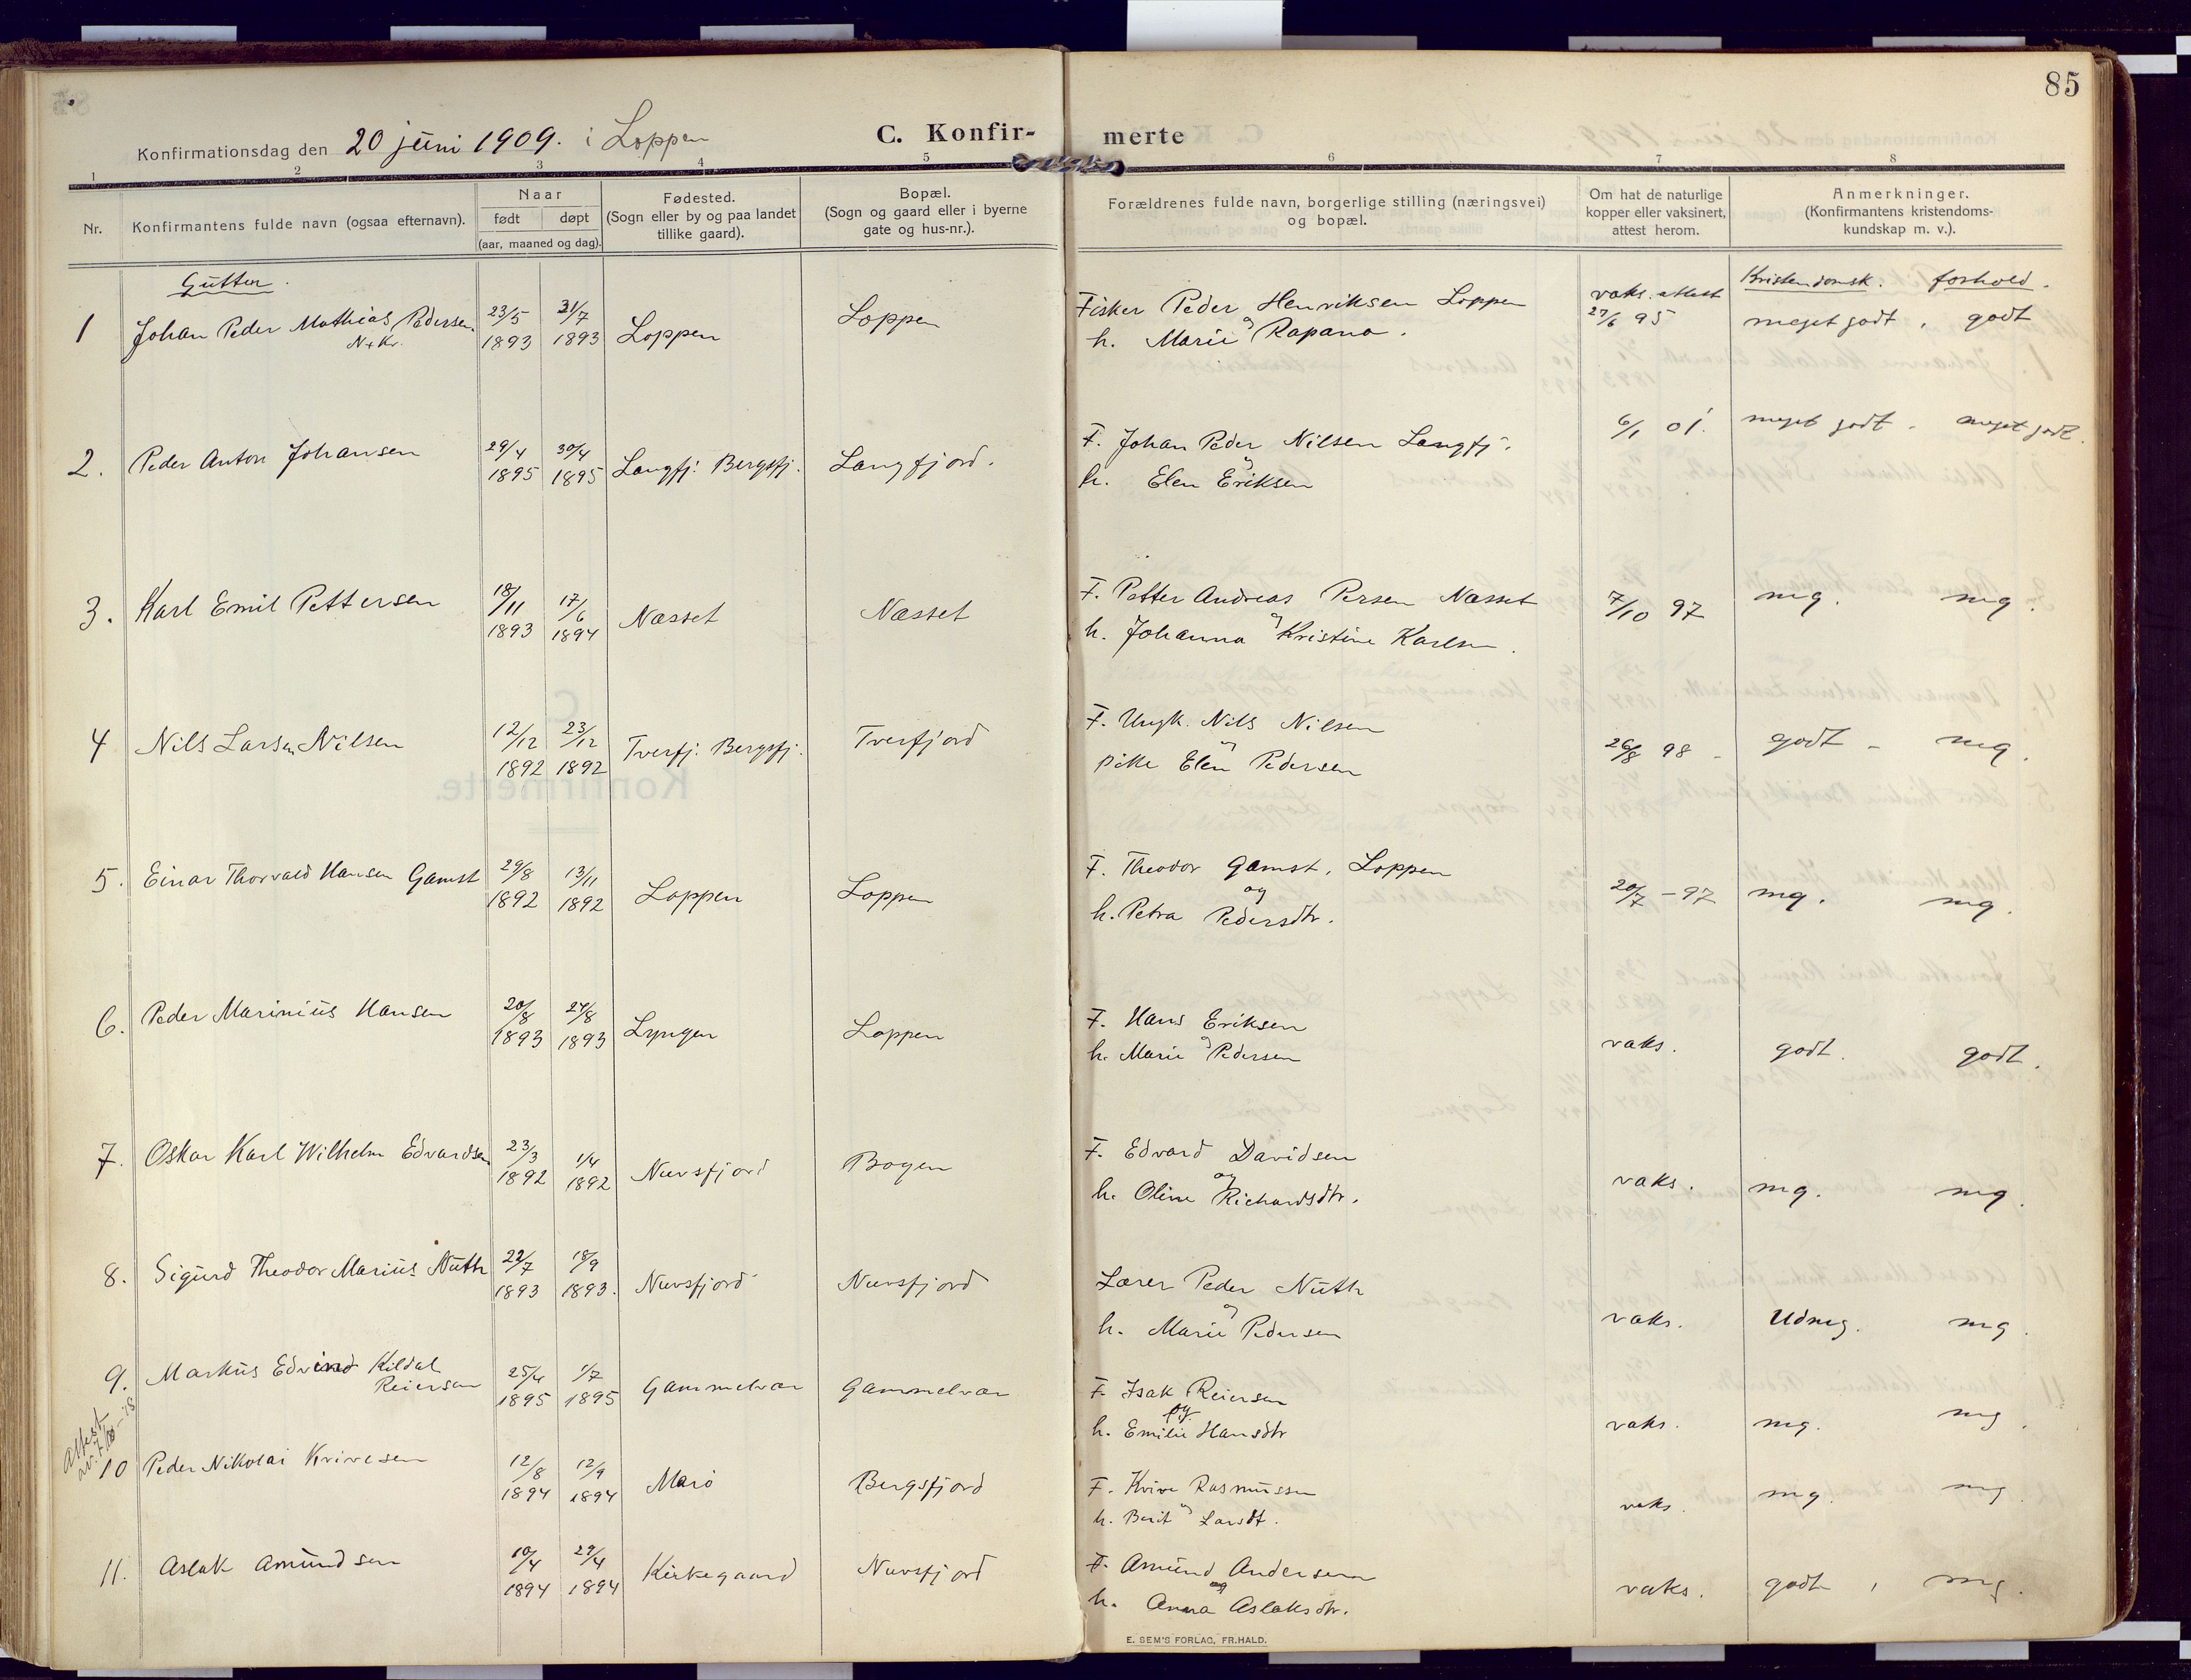 85
Konfirmationsdag den 20 juni 1909. i Loppen
C. Konfir- merte
1 2 3 4 5 6 7 8
Nr.
Konfirmantens fulde navn (ogsaa efternavn).
Naar
født døpt
(aar, maaned og dag).
Fødested.
(Sogn eller by og paa landet
tillike gaard).
Bopæl.
(Sogn og gaard eller i byerne
gate og hus-nr.).
Forældrenes fulde navn, borgerlige stilling (næringsvei)
og bopæl.
Om hat de naturlige
kopper eller vaksinert,
attest herom.
Anmerkninger.
(Konfirmantens kristendoms-
kundskap m. v.).
Gutter.
Kristendomsk. forhold.
1 Johan Peder Mathias Pedersen. 23/5 1893 31/7 1893 Loppen Loppen
N+K.
Fisker Peder Henriksen Loppen
og
h. Marie Rapana.
vaks. attest 27/6 95 meget godt, godt
2. Peder Anton Johansen 29/4 1895 30/4 1895 Langfj: Bergsfj. Langfjord.
F. Johan Peder Nilsen Langfj.
og
h. Elen Eriksen
6/1 01. meget godt. meget godt.
3. Karl Emil Pettersen 18/11 1893 17/6 1894 Næsset Næsset
F. Petter Andreas Persen Næsset
og
h. Johanna Kristine Karlsen.
7/10 97 mg. mg.
4 Nils Larsen Nilsen 12/12 1892 23/12 1892 Tverfj: Bergsfj. Tverfjord
F. Ungk. Nils Nilsen
og
pike Elen Pedersen
26/8 98 - godt - mg.
5. Einar Thorvald Hansen Gamst 29/8 1892 13/11 1892 Loppen Loppen
F. Theodor Gamst, Loppen
og
h. Petra Pedersdtr.
20/7 - 97 mg. mg.
6. Peder Marinius Hansen 20/8 1893 27/8 1893 Lyngen Loppen
F. Hans Eriksen
og
h. Marie Pedersen
vaks. godt. godt.
7. Oskar Karl Wilhelm Edvardsen 23/3 1892 1/4 1892 Nuvsfjord Bogen
F. Edvard Davidsen
og
h. Oline Richardsdtr.
vaks. mg. mg.
8. Sigurd Theodor Marius Nuth 22/7 1893 18/9 1893. Nuvsfjord Nuvsfjord
Lærer Peder Nuth
og
h. Marie Pedersen
vaks. Udmg. mg.
9. Markus Edvind Kildal
Reiersen 25/4 1895 1/7 1895 Gammelvær Gammelvær
F. Isak Reiersen
og
h. Emilie Hansdtr
vaks. mg. mg.
Attest
10 Peder Nikolai Kvivesen 12/8 1894 12/9 1894 Marø Bergsfjord
F. Kvive Rasmussen
og
h. Berit Larsdt.
vaks. mg. mg.
11. Aslak Amundsen 10/4 1894 29/4 1894 Kirkegaard Nuvsfjord
F. Amund Andersen
og
h. Anna Aslaksdtr.
vaks. godt, mg.
E. SEM'S FORLAG, FR.HALD.